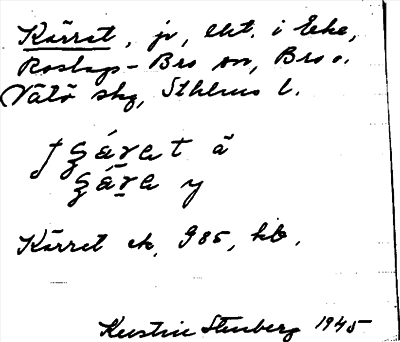 Kärret, jr, lht. i Eke,
Roslags-Bro sn, Bro o.
Vätö skg, Sthlms l.
ʃʒárat ä
ʒára y
Kärret ek. 985, kb.
Kerstin Stenberg 1945